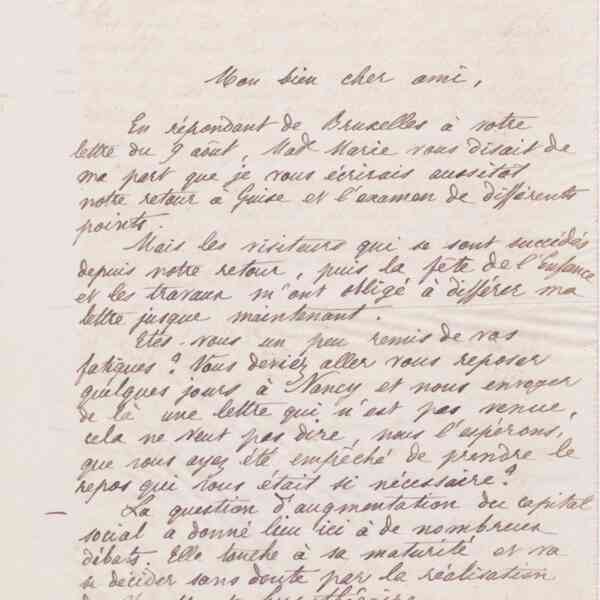 Mon bien cher ami,
En répondant de Bruxelles à votre
lettre du 9 août, Mad. Marie vous disait de
ma part que je vous écrirais aussitôt
notre retour à Guise et l'examen de différents
points.
Mais les visiteurs qui se sont succédés
depuis notre retour, puis la fête de l'Enfance
et les travaux m'ont obligé à différer ma
lettre jusque maintenant.
Etes-vous un peu remis de vos
fatigues? Vous deviez aller vous reposer
quelques jours à Nancy et nous envoyer
de là une lettre qui n'est pas venue,
cela ne veut pas dire, nous l'espérons,
que vous ayez été empêché de prendre le
repos qui vous était si nécessaire?
La question d'augmentation du capital
social a donné lieu ici à de nombreux
débats. Elle touche à sa maturité et va
se décider sans doute par la réalisation